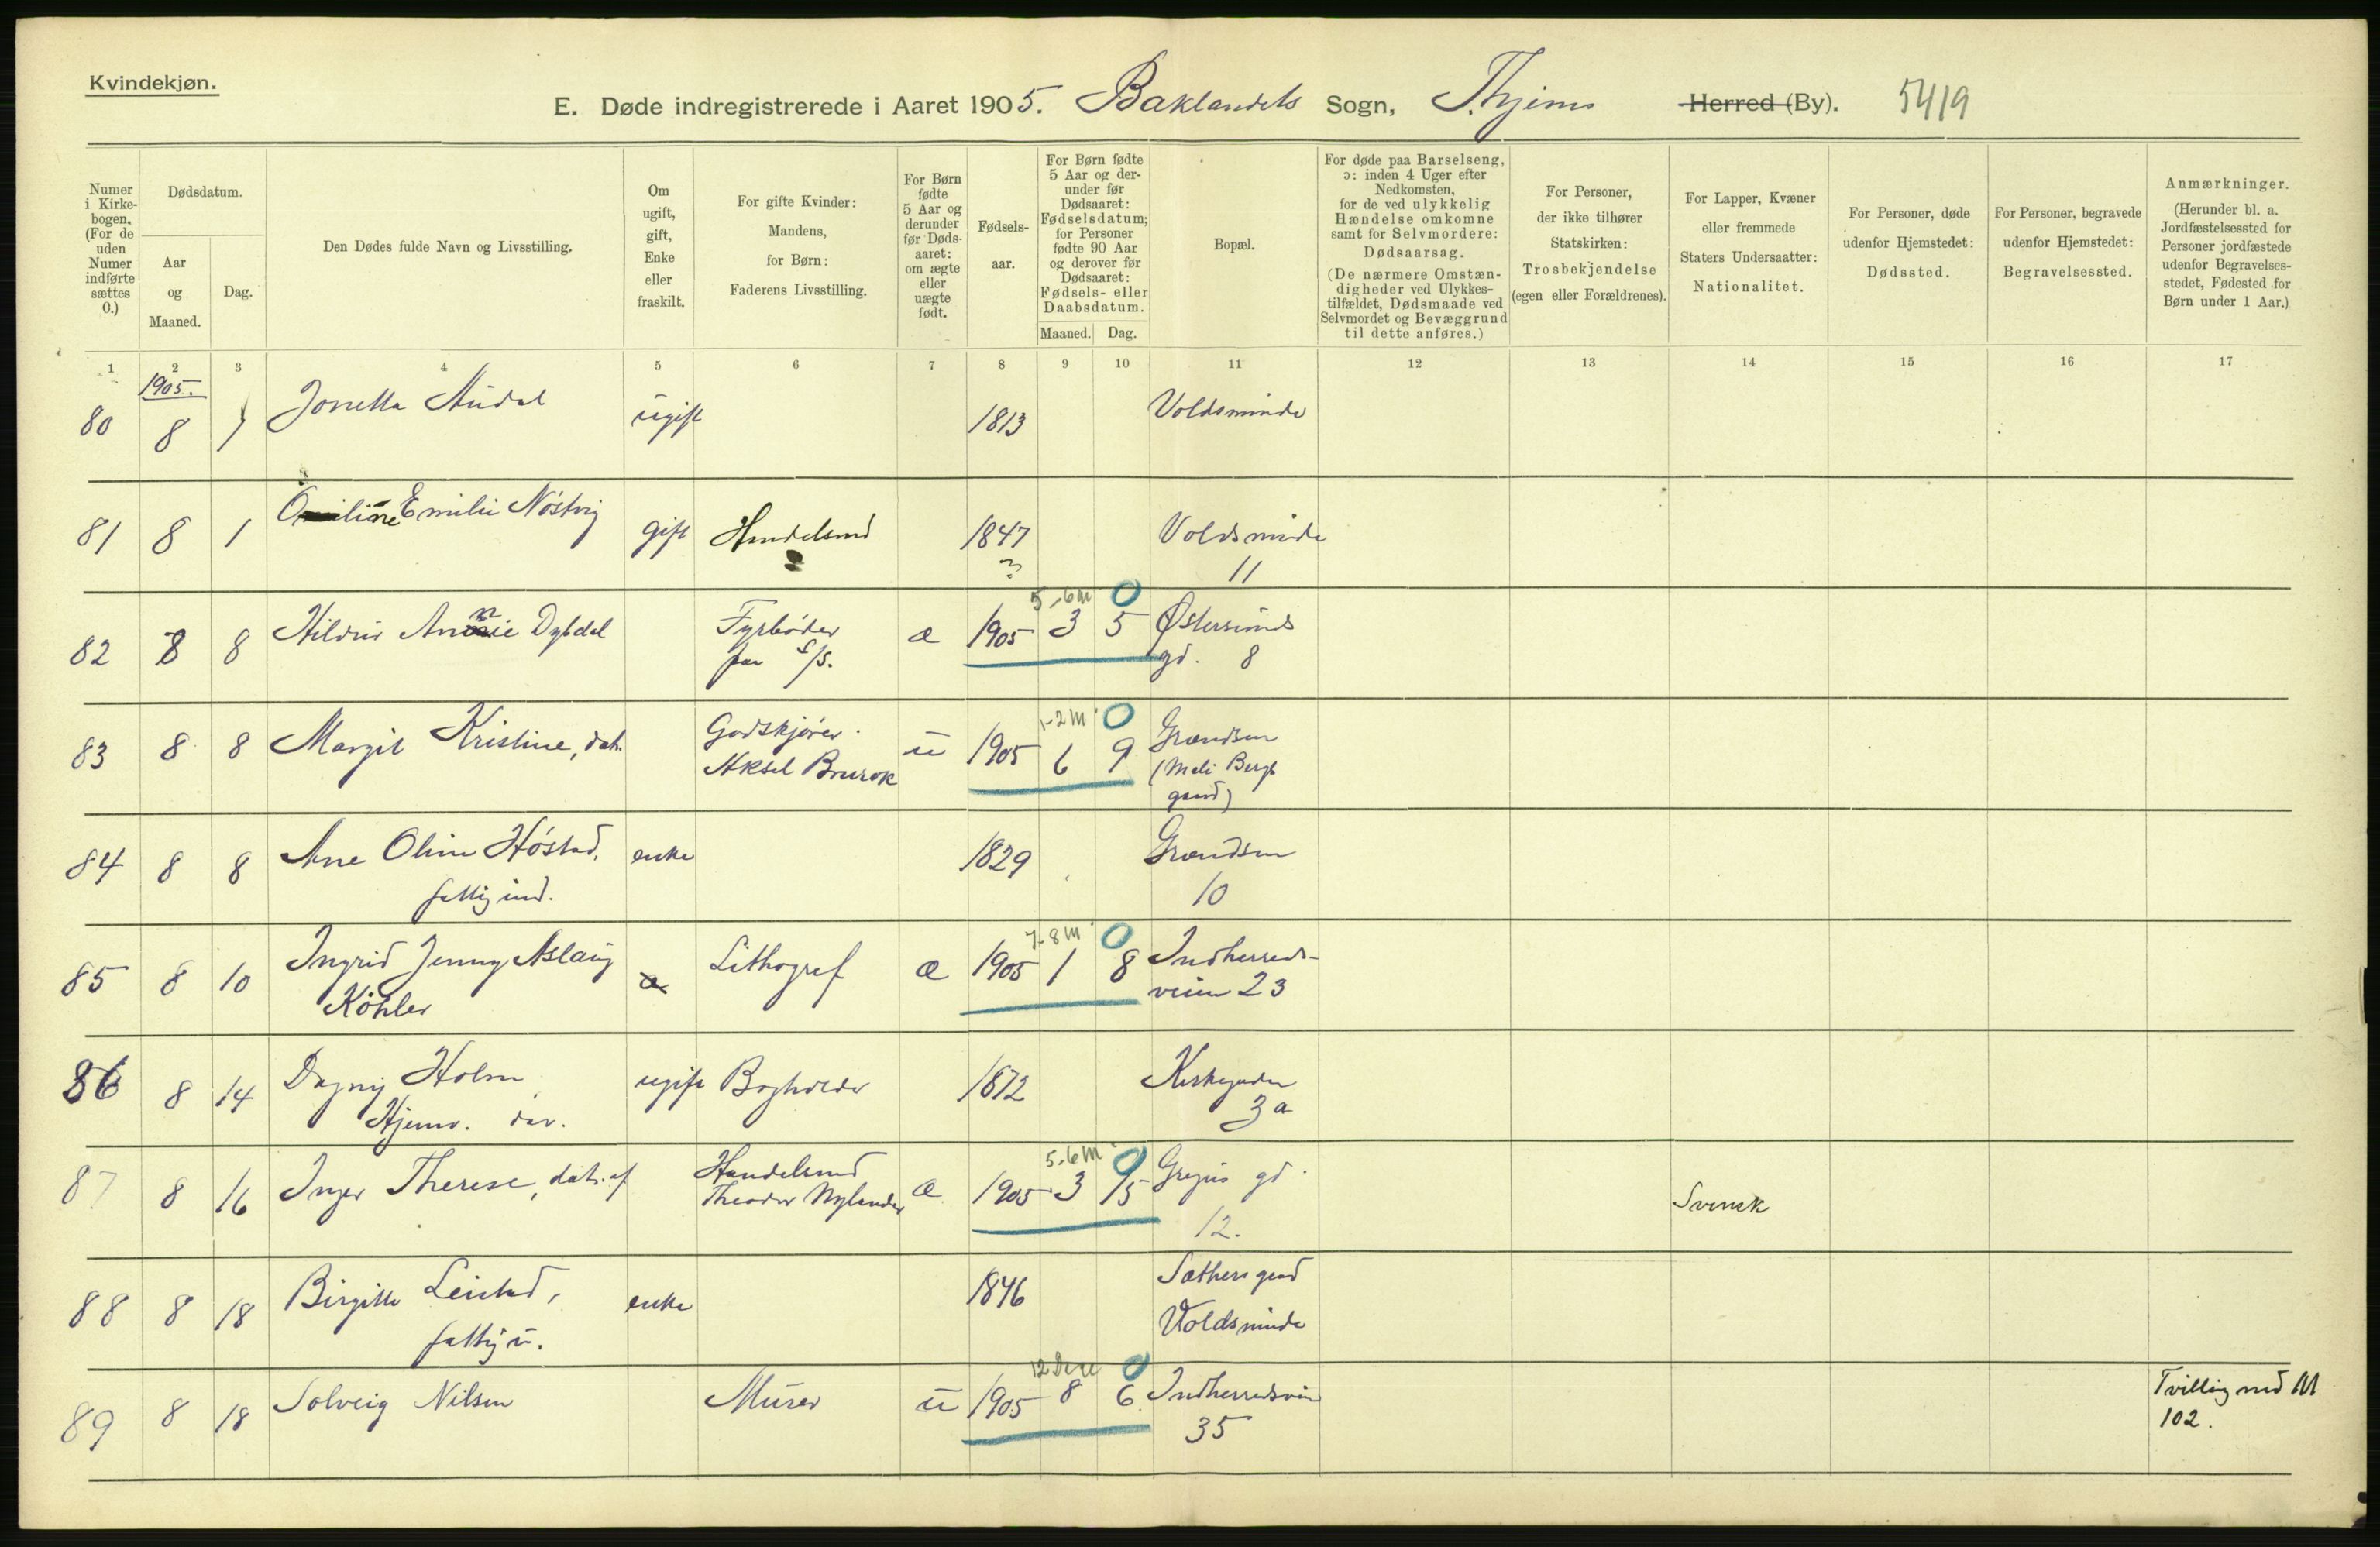 Kvindekjøn.
E. Døde indregistrerede i Aaret 1905. Baklandets Sogn, T.hjems Herred (By). 5419
Numer i Kirkebogen. (For de uden Numer indførte sættes 0.)
Dødsdatum.
Aar og Maaned.
Dag.
Den Dødes fulde Navn og Livsstilling.
Om ugift, gift, Enke eller fraskilt.
For gifte Kvinder: Mandens, for Børn: Faderens Livsstilling.
For Børn fødte 5 Aar og derunder før Dødsaaret: om ægte eller uægte født.
Fødselsaar.
For Børn fødte 5 Aar og derunder før Dødsaaret: Fødselsdatum; for Personer fødte 90 Aar og derover før Dødsaaret: Fødsels- eller Daabsdatum.
Maaned. Dag.
Bopæl.
For døde paa Barselseng, ɔ: inden 4 Uger efter Nedkomsten, for de ved ulykkelig Hændelse omkomne samt for Selvmordere: Dødsaarsag. (De nærmere Omstændigheder ved Ulykkestilfældet, Dødsmaade ved Selvmordet og Bevæggrund til dette anføres.)
For Personer, der ikke tilhører Statskirken: Trosbekjendelse (egen eller Forældrenes).
For Lapper, Kvæner eller fremmede Staters Undersaatter: Nationalitet.
For Personer, døde udenfor Hjemstedet: Dødssted.
For Personer, begravede udenfor Hjemstedet: Begravelsessted.
Anmærkninger. (Herunder bl. a. Jordfæstelsessted for Personer jordfæstede udenfor Begravelsesstedet, Fødested for Børn under 1 Aar.)
1 2 3 4 5 6 7 8 9 10 11 12 13 14 15 16 17
1905.
80 8 7 Jonetta Audal ugift 1813 Voldsminde
81 8 1 Emilie Nøstvig gift Handelsmd 1847 Voldsminde
? 11
5-6 m 0
82 8 8 Hildur Annie Dybdal Fyrbøder æ 1905 3 5 Østersunds
paa S/S. gd. 8
1-2 m 0
83 8 8 Margit Kristine, datr. Godskjører u 1905 6 9 Grændsen
Aksel Brurok (Meli Bergs
gaard)
84 8 8 Ane Oline Høstad, enke 1829 Grændsen
fattigund. 10
7-8 m 0
85 8 10 Ingrid Jenny Aslaug æ Lithograf æ 1905 1 8 Indherreds-
Köhler veien 23
86 8 14 Dagny Holm ugift Bogholder 1872 Kirkegaden
Hjemv. dav. 3 a
5-6 m 0
87 8 16 Inger Therese, datr. af Handelsmd æ 1905 3 15 Gregus gd.
Theodor Nylander 12. Svensk
88 8 18 Birgitte Leistad, enke 1846 Sæthers gaard
fattigu. Voldsminde
12 Dage 0
89 8 18 Solveig Nilsen Murer u 1905 8 6 Indherredsvein Tvilling med M
35 102.